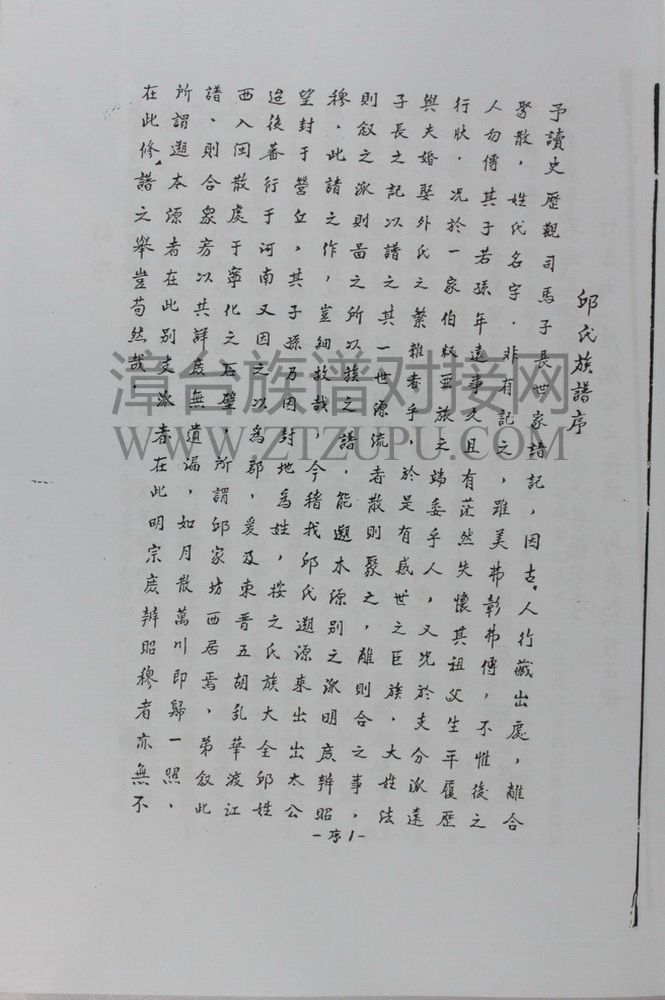 邱氏族譜序
予讀史歷觀司馬子長世家諸記，因古人行藏出處，離合
聚散，姓氏名字．非有記之，雖美弗彰弗傳，不惟後之
人勿傳其于若孫年遠事久且有茫然失懷其祖父生平履歷
行狀，況於一家伯叔亜旅之端委乎人，又況於支分派遠
與夫婚娶外氏之繁雜者乎，於是有感世之巨族．大姓法
子長之記以譜之其一世源流者散則聚之，離則合之事，
則叙之派則畐之所以族之譜，能遡木源別之派明庻辨昭
穆．此請之作，豈細故哉，今稽我邱氏遡源來出出太公
望封于營丘，其子孫乃因封地為姓，按之氏族大全邱姓
迨後蕃衍于河南又因之以為郡，爰及東晋五胡乱華渡江
西入闽散處于寧化之石壁，所謂邱家坊西居焉，弟叙此
譜，則合衆房以共詳庻無遺漏，如月散萬川即歸一照，
所謂遡本源者在此別支派者在此明宗庻辨昭穆者亦無不
在此修譜之舉豈苟然哉．
-序1-
漳台族谱对接网
WWW.ZTZUPU.COM